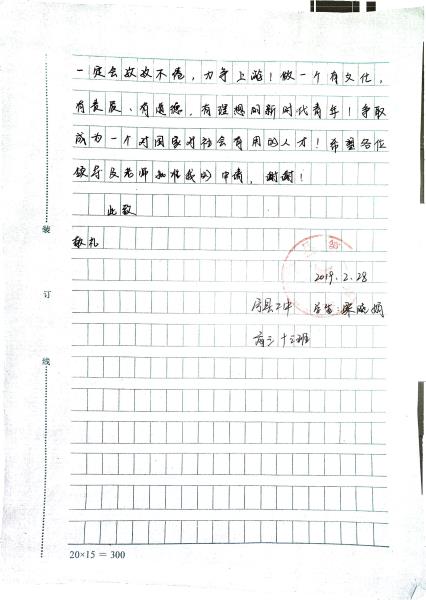 一定会孜孜不倦，力争上游！做一个有文化，
有发展、有道德，有理想的新时代青年！争取
成为一个对国家对社会有用的人才！希望各位
领导及老师批准我的申请，谢谢！
此致
敬礼
2019.2.28
县二中 学生：梁
高三十三班
装
订
线
20×15＝300